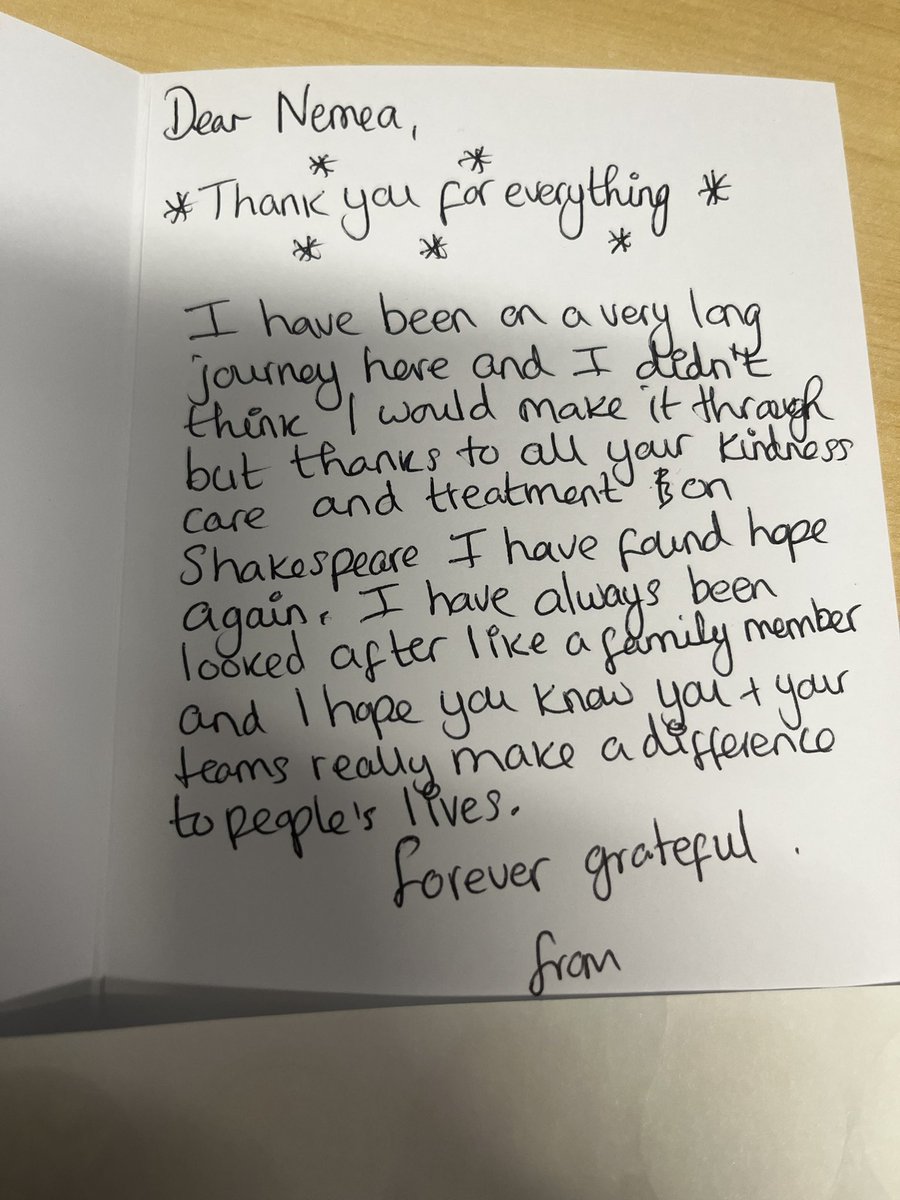 Dear Nemea,
* *
*Thank you for everything *
* * *
I have been on a very long
journey here and I didn't
think I would make it through
but thanks to all your kindness
care and treatment on
Shakespeare I have found hope
again. I have always been
looked after like a family member
and I hope you know you + your
teams really make a difference
to people's lives.
forever grateful.
from